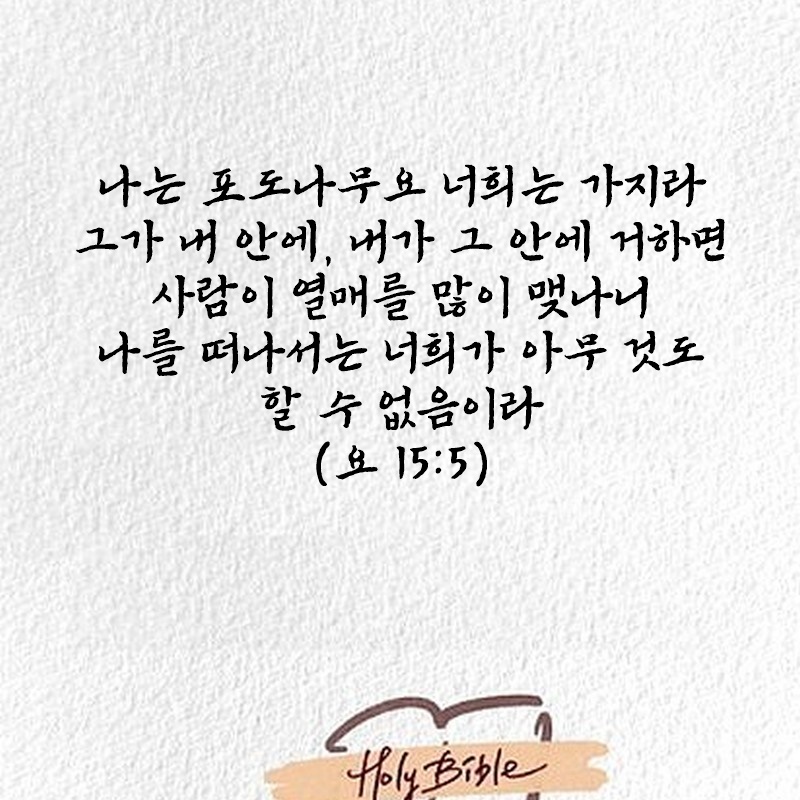 나는 포도나무요 너희는 가지라
그가 내 안에, 내가 그 안에 거하면
사람이 열매를 많이 맺나니
나를 떠나서는 너희가 아무 것도
할 수 없음이라
(요 15:5)
Holy Bible